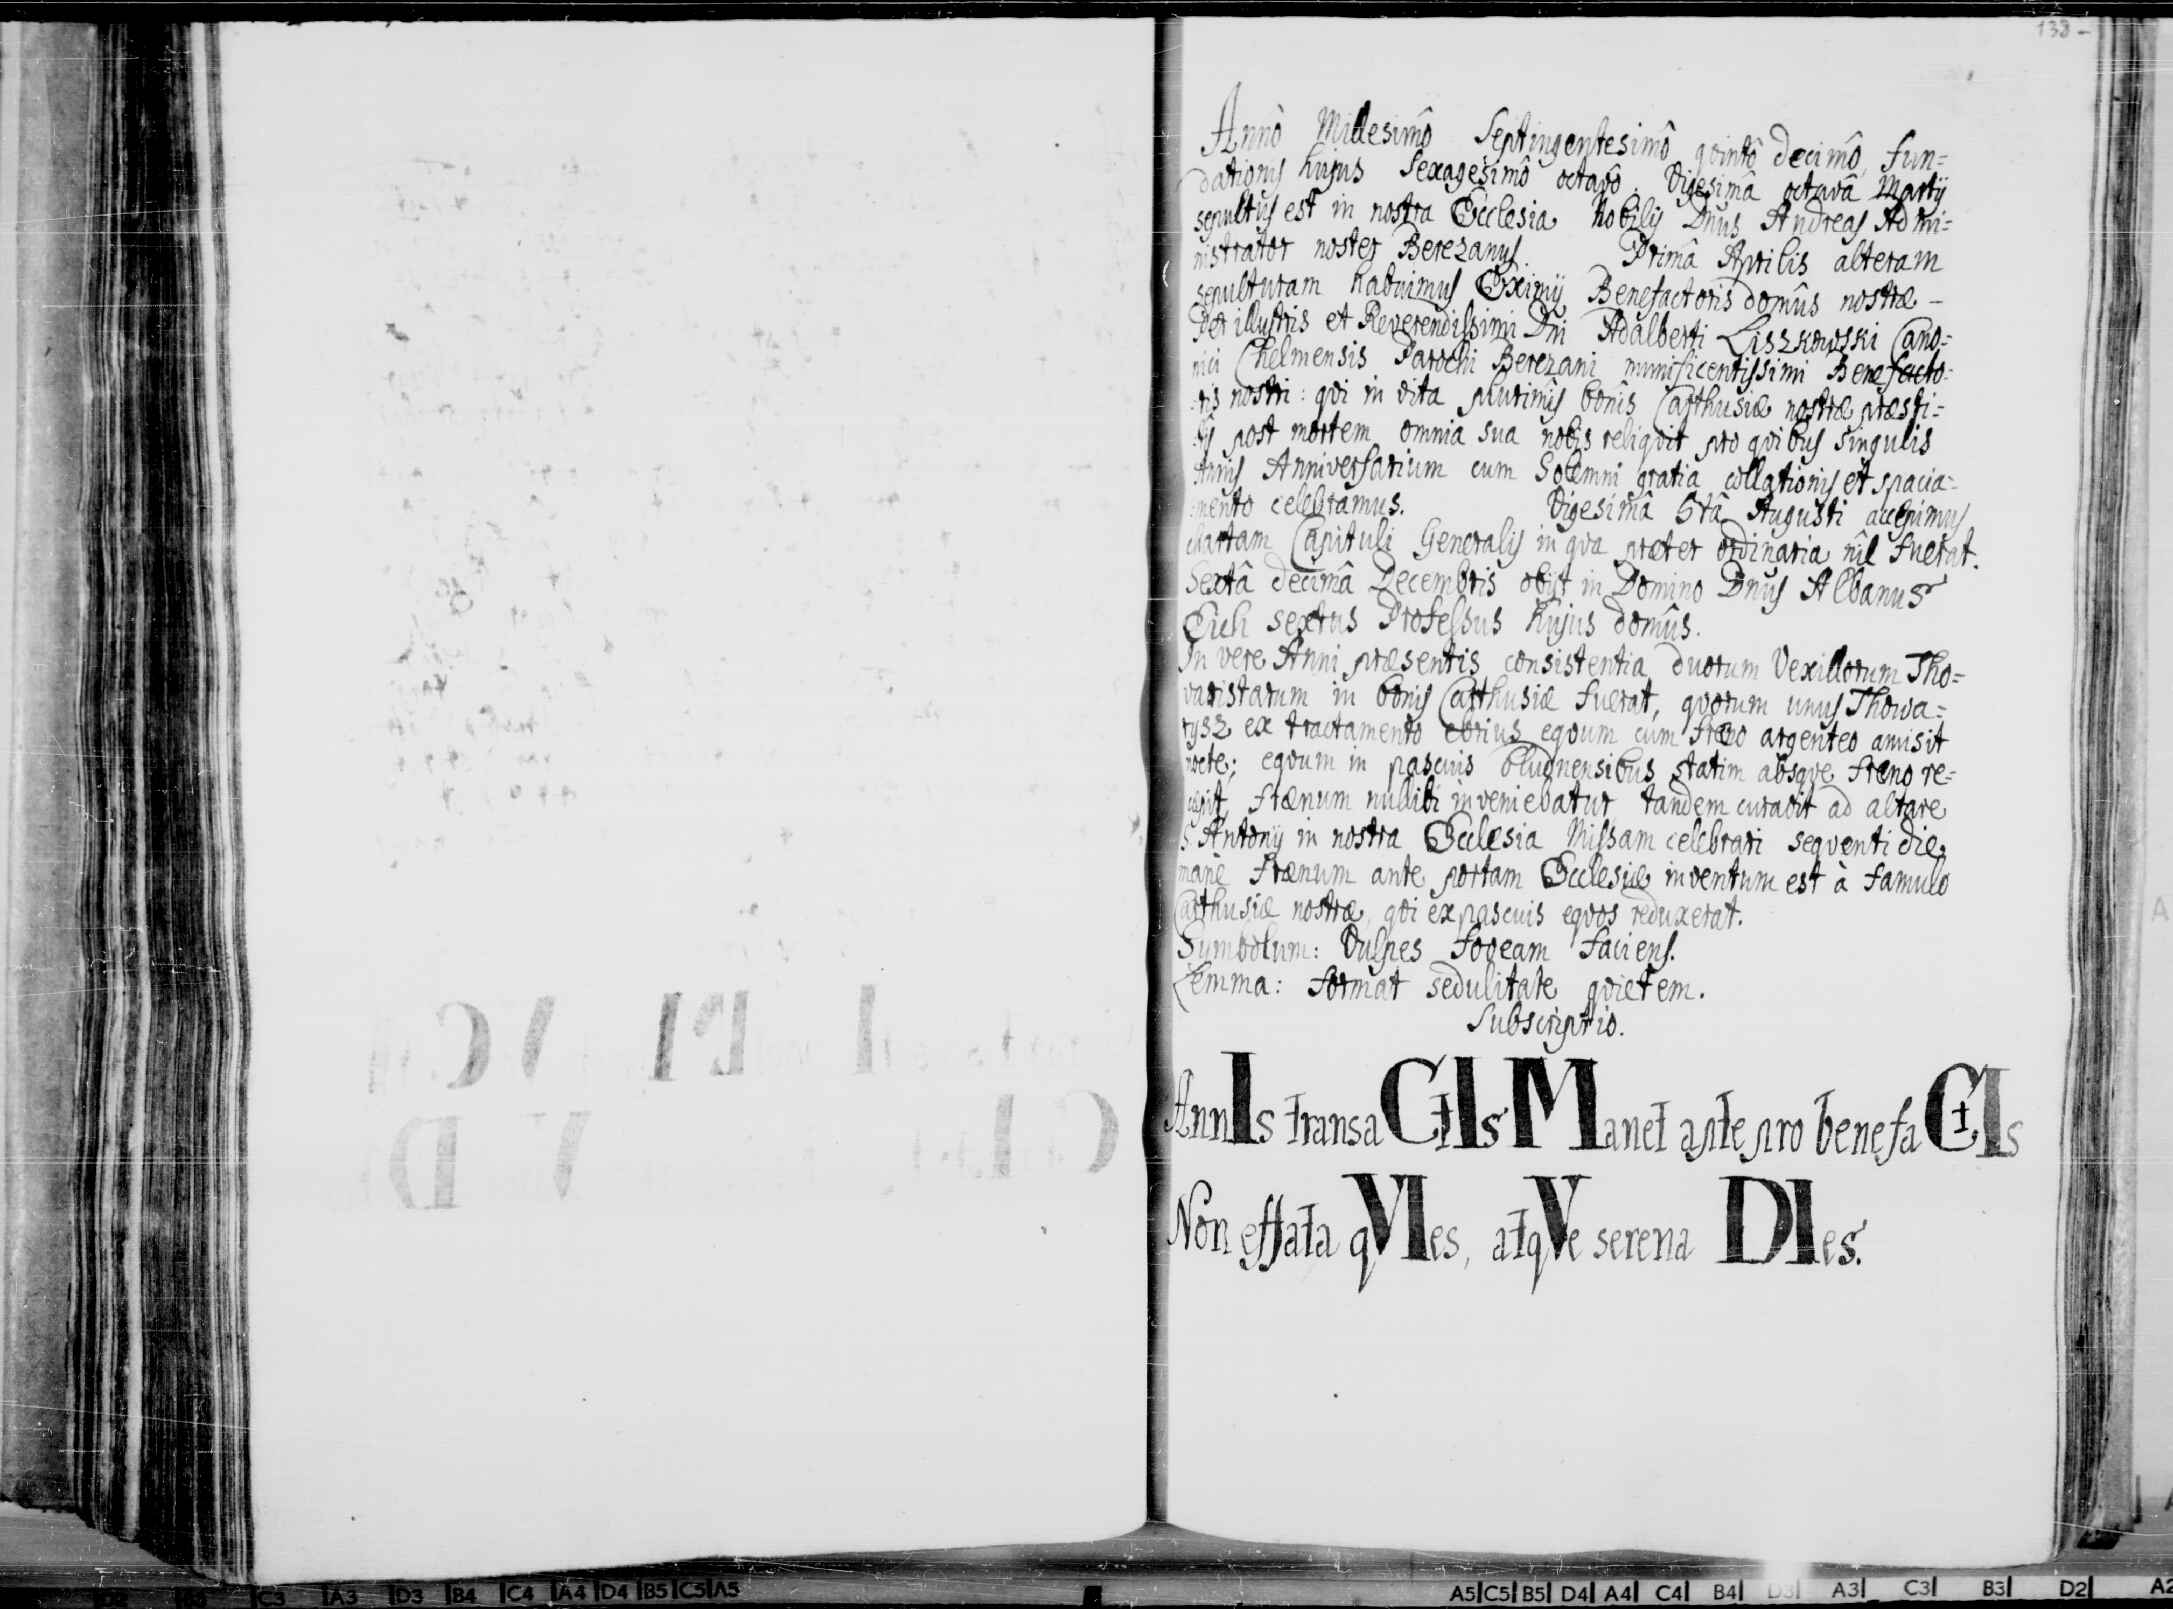 138
Annò Millesimô Septingentesimô qvintô decimô, fun=
dationis hujus Sexagesimô octavô. Vigesimâ octavâ Martij
sepultus est in nostra Ecclesia Nobilis Dnus Andreas Admi=
nistrator noster Berezanus. Primâ Aprilis alteram
sepulturam habuimus Eximij Benefactoris domûs nostræ –
Per illustris et Reverendissimi Dni Adalberti Liszkowski Cano=
nici Chelmensis Parochi Berezani munificentissimi Benefacto=
ris nostri: qvi in vita plurimis bonis Carthusiæ nostræ præsti=
tis post mortem omnia sua nobis reliqvit pro qvibus singulis
Annis Anniversarium cum Solemni gratia collationis et spacia=
mento celebramus. Vigesimâ 5tâ Augusti accepimus
chartam Capituli Generalis in qva præter ordinaria nîl fuerat.
Sextâ decimâ Decembris obijt in Domino Dnus Albanus
Eich sextus Professus hujus domûs.
In vere Anni præsentis consistentia duorum Vexillorum Tho=
varistarum in bonis Carthusiæ fuerat, qvorum unus Thowa=
rysz ex tractamento ebrius eqvum cum fræno argenteo amisit
nocte; eqvum in pascuis bludnensibus statim absqve fræno re=
cepit, frænum nullibi inveniebatur, tandem curavit ad altare
S Antonij in nostra Ecclesia Missam celebrari seqventi die
manè frænum ante portam Ecclesiæ inventum est à famulo
Carthusiæ nostræ, qvi ex pascuis eqvos reduxerat.
Symbolum: Vulpes foveam faciens.
Lemma: format sedulitate qvietem.
Subscriptio.
AnnIs transaCtIs Manet apte pro benefaCtIs
Non effata qVIes, atqVe serena DIes.
A5 C5 B5 D4 A4 C4 B4 D3 A3 C3 B3 D2 A2
C3 A3 D3 B4 C4 A4 D4 B5 C5 A5